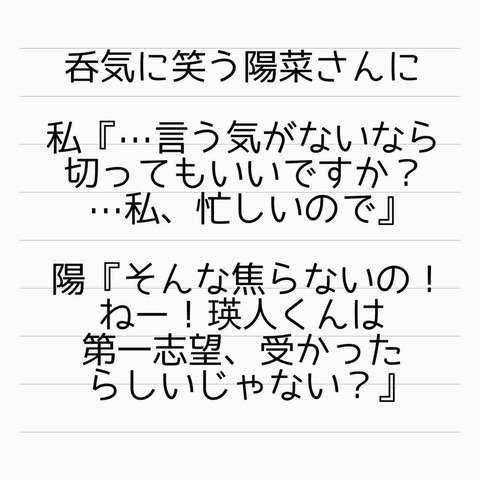 呑気に笑う陽菜さんに
私『…言う気がないなら
切ってもいいですか？
…私、忙しいので』
陽『そんな焦らないの！
ねー！瑛人くんは
第一志望、受かった
らしいじゃない？』